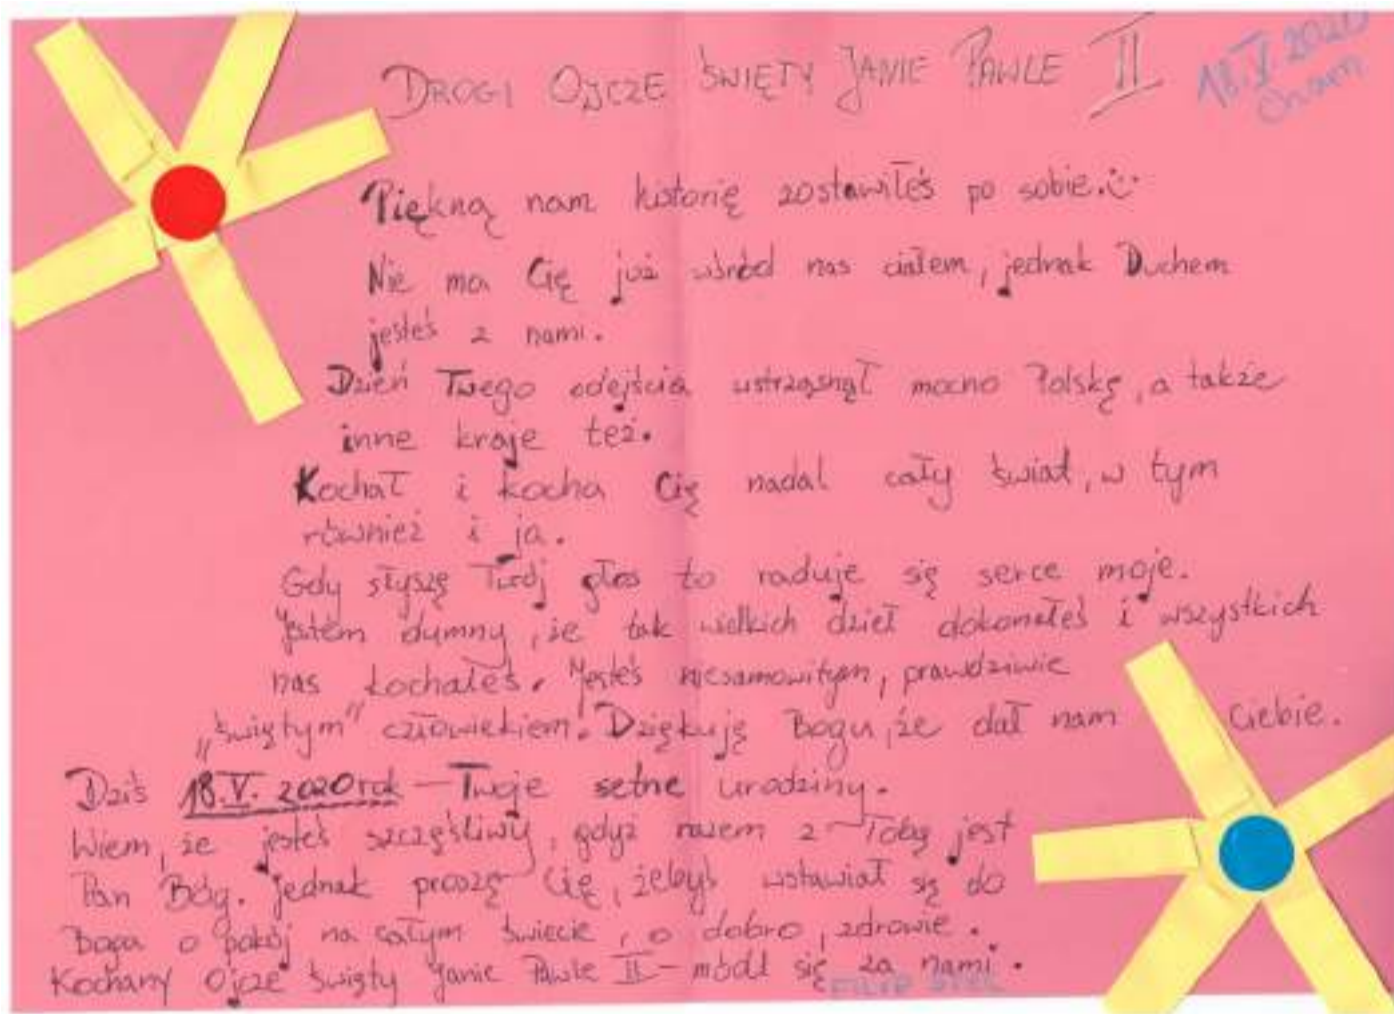 DROGI OJCZE ŚWIĘTY JANIE PAWLE II
18.V 2020
Piękną nam historię zostawiłeś po sobie.
Nie ma Cię już wśród nas ciałem, jednak Duchem
jesteś z nami.
Dzień Twego odejścia wstrząsnął mocno Polskę, a także
inne kraje też.
Kochał i kocha Cię nadal cały świat, w tym
również i ja.
Gdy słyszę Twój głos to raduje się serce moje.
Jestem dumny, że tak wielkich dzieł dokonałeś i wszystkich
nas kochałeś. Jesteś niesamowitym, prawdziwie
„świętym" człowiekiem. Dziękuję Bogu, że dał nam Ciebie.
Dziś 18.V. 2020 rok — Twoje setne urodziny.
Wiem, że jesteś szczęśliwy, gdyż razem z Tobą jest
Pan Bóg. jednak proszę Cię, żebyś wstawiał się do
Boga o pokój na całym świecie, o dobro, zdrowie.
Kochany Ojcze święty Janie Pawle II – módl się za nami.